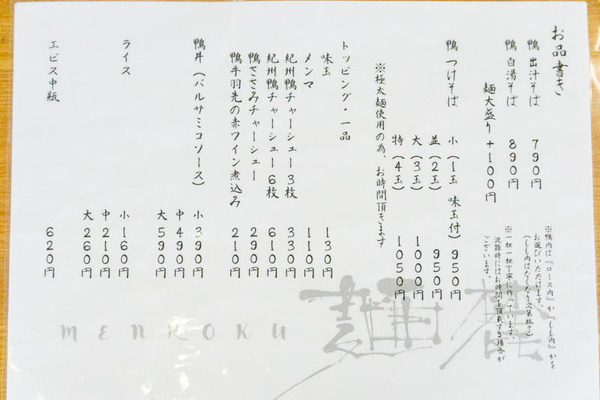 お品書き
鴨 出汁そば 790円
鴨 白湯そば 890円
麺大盛り +100円
※鴨肉は『ロース肉』か『もも肉』かを
お選びいただけます。
(もも肉はなくなり次第終了)
※一杯一杯丁寧に作っています。
混雑時にはお時間を頂戴する場合が
ございます。
鴨 つけそば 小(1玉 味玉付)950円
並(2玉) 950円
大(3玉) 1000円
特(4玉) 1050円
※極太麺使用の為、お時間頂きます
トッピング・一品
味玉 130円
メンマ 110円
紀州鴨チャーシュー3枚 330円
紀州鴨チャーシュー6枚 610円
鴨ささみチャーシュー 290円
鴨手羽先の赤ワイン煮込み 210円
鴨丼(バルサミコソース) 小 390円
中 490円
大 590円
ライス 小 160円
中 210円
大 260円
エビス中瓶 620円
MENKOKU